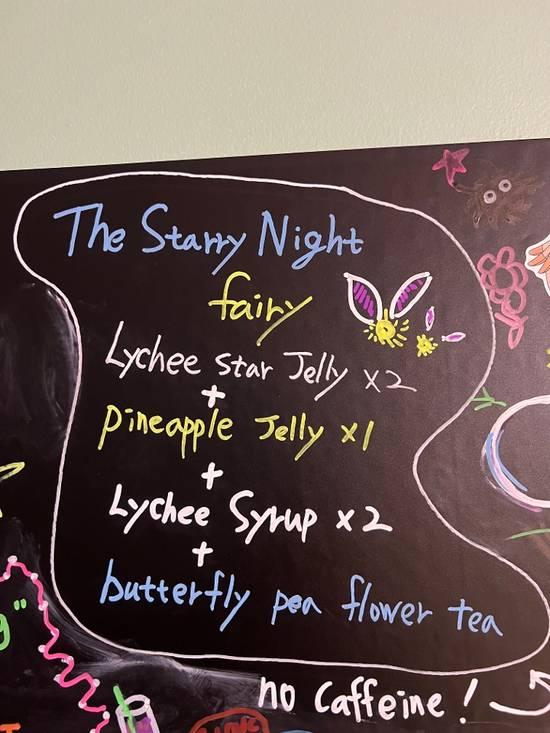 The Starry Night
fairy
Lychee Star Jelly x2
+
pineapple Jelly x1
+
Lychee Syrup x2
+
butterfly pea flower tea
no Caffeine!
g"